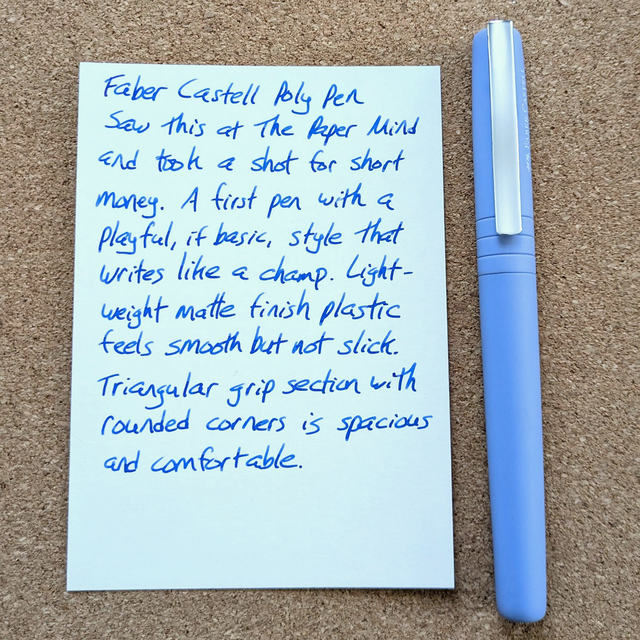 Faber Castell Poly Pen
Saw this at The Paper Mind
and took a shot for short
money. A first pen with a
playful, if basic, style that
writes like a champ. Light-
weight matte finish plastic
feels smooth but not slick.
Triangular grip section with
rounded corners is spacious
and comfortable.